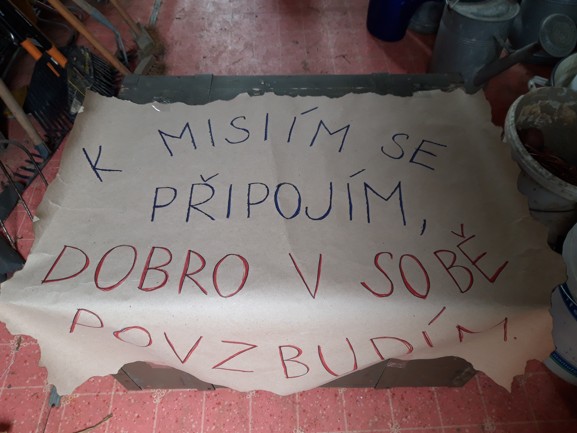 K MISIÍM SE
PŘIPOJÍM,
DOBRO V SOBĚ
POVZBUDÍM.